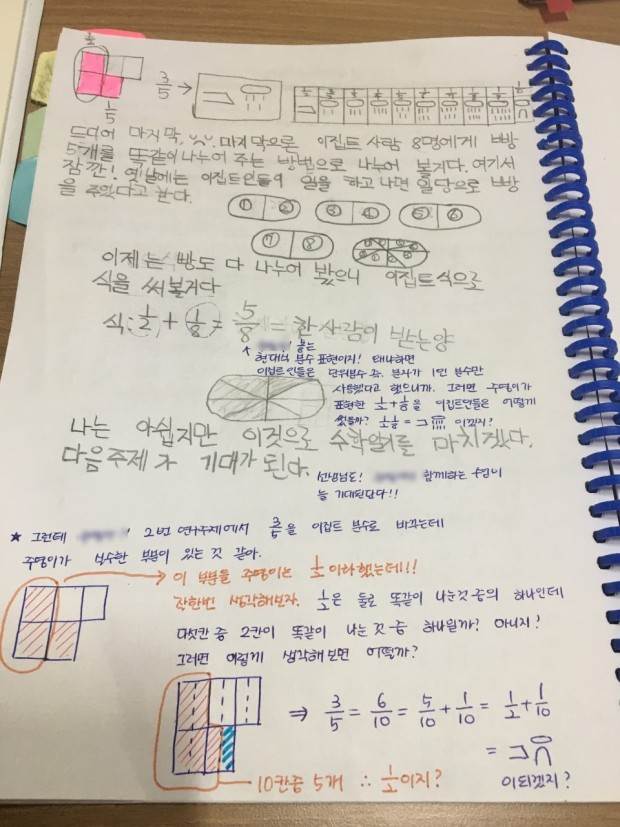 1/2
1/5
3/5 →
드디어 마지막, 마지막으론 이집트 사람 8명에게 빵
5개를 똑같이 나누어 주는 방법으로 나누어 볼거다. 여기서
잠깐! 옛날에는 이집트인들이 일을 하고 나면 일당으로 빵
을 주었다고 한다.
① ② ③ ④ ⑤ ⑥
⑦ ⑧
이제는 식빵도 다 나누어 봤으니 이집트 식으로
식을 써 볼거다
식: 1/2 + 1/8 = 5/8 = 한 사람이 받는 양
현대식 분수 표현이지! 왜냐하면
이집트인들은 단위분수 즉, 분자가 1인 분수만
사용했다고 했으니까. 그러면 주영이가
표현한 1/2 + 1/8을 이집트인들은 어떻게
썼을까?
이겠지?
나는 아쉽지만 이것으로 수학일기를 마치겠다.
다음 주제가 기대가 된다.
선생님도! 함께하는 수업이
늘 기대된단다!!
★ 그런데 2번 연구주제에서 3/5을 이집트 분수로 바꾸는데
주영이가 실수한 부분이 있는 것 같아.
→ 이 부분을 주영이는 1/2이라 했는데!!!
잘한번 생각해보자. 1/2은 둘로 똑같이 나눈 것 중의 하나인데
다섯칸 중 2칸이 똑같이 나눈 것 중 하나일까? 아니지?
그러면 이렇게 생각해보면 어떨까?
⇒ 3/5 = 6/10 = 5/10 + 1/10 = 1/2 + 1/10
=
10칸중 5개 ∴ 1/2이지?
이 되겠지?